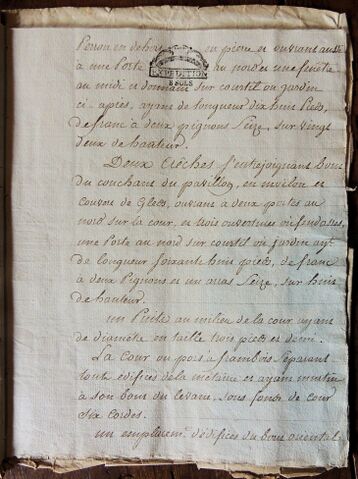 Perron en dehors en pierre et ouvrant aussi
EXPEDITION
8 SOLS
a une Porte au nord et une fenetre
au midi et donnant sur courtil ou Jardin
ci-après, ayant de longueur dix huit Pieds,
de franc a deux pignons Seize, sur vingt
deux de hauteur.
Deux Crêches s'entrejoignant bout
du couchant du pavillon, en
Couvert de Gleds, ouvrant a deux portes au
nord sur la cour, et trois ouvertures ou fendasses,
une Porte au nord sur courtil ou jardin ayt.
de longueur soixante huit pieds, de franc
a deux Pignons et un Seize, sur huit
de hauteur.
un Puits au milieu de la cour ayant
de diametre en taille trois pieds et demi.
La Cour ou pors a frambois Séparant
toute édifices de la métairie et ayant
a son bout du levant, sous fonds de cour
Six cordes.
un emplacemt. dédifices du bout oriental